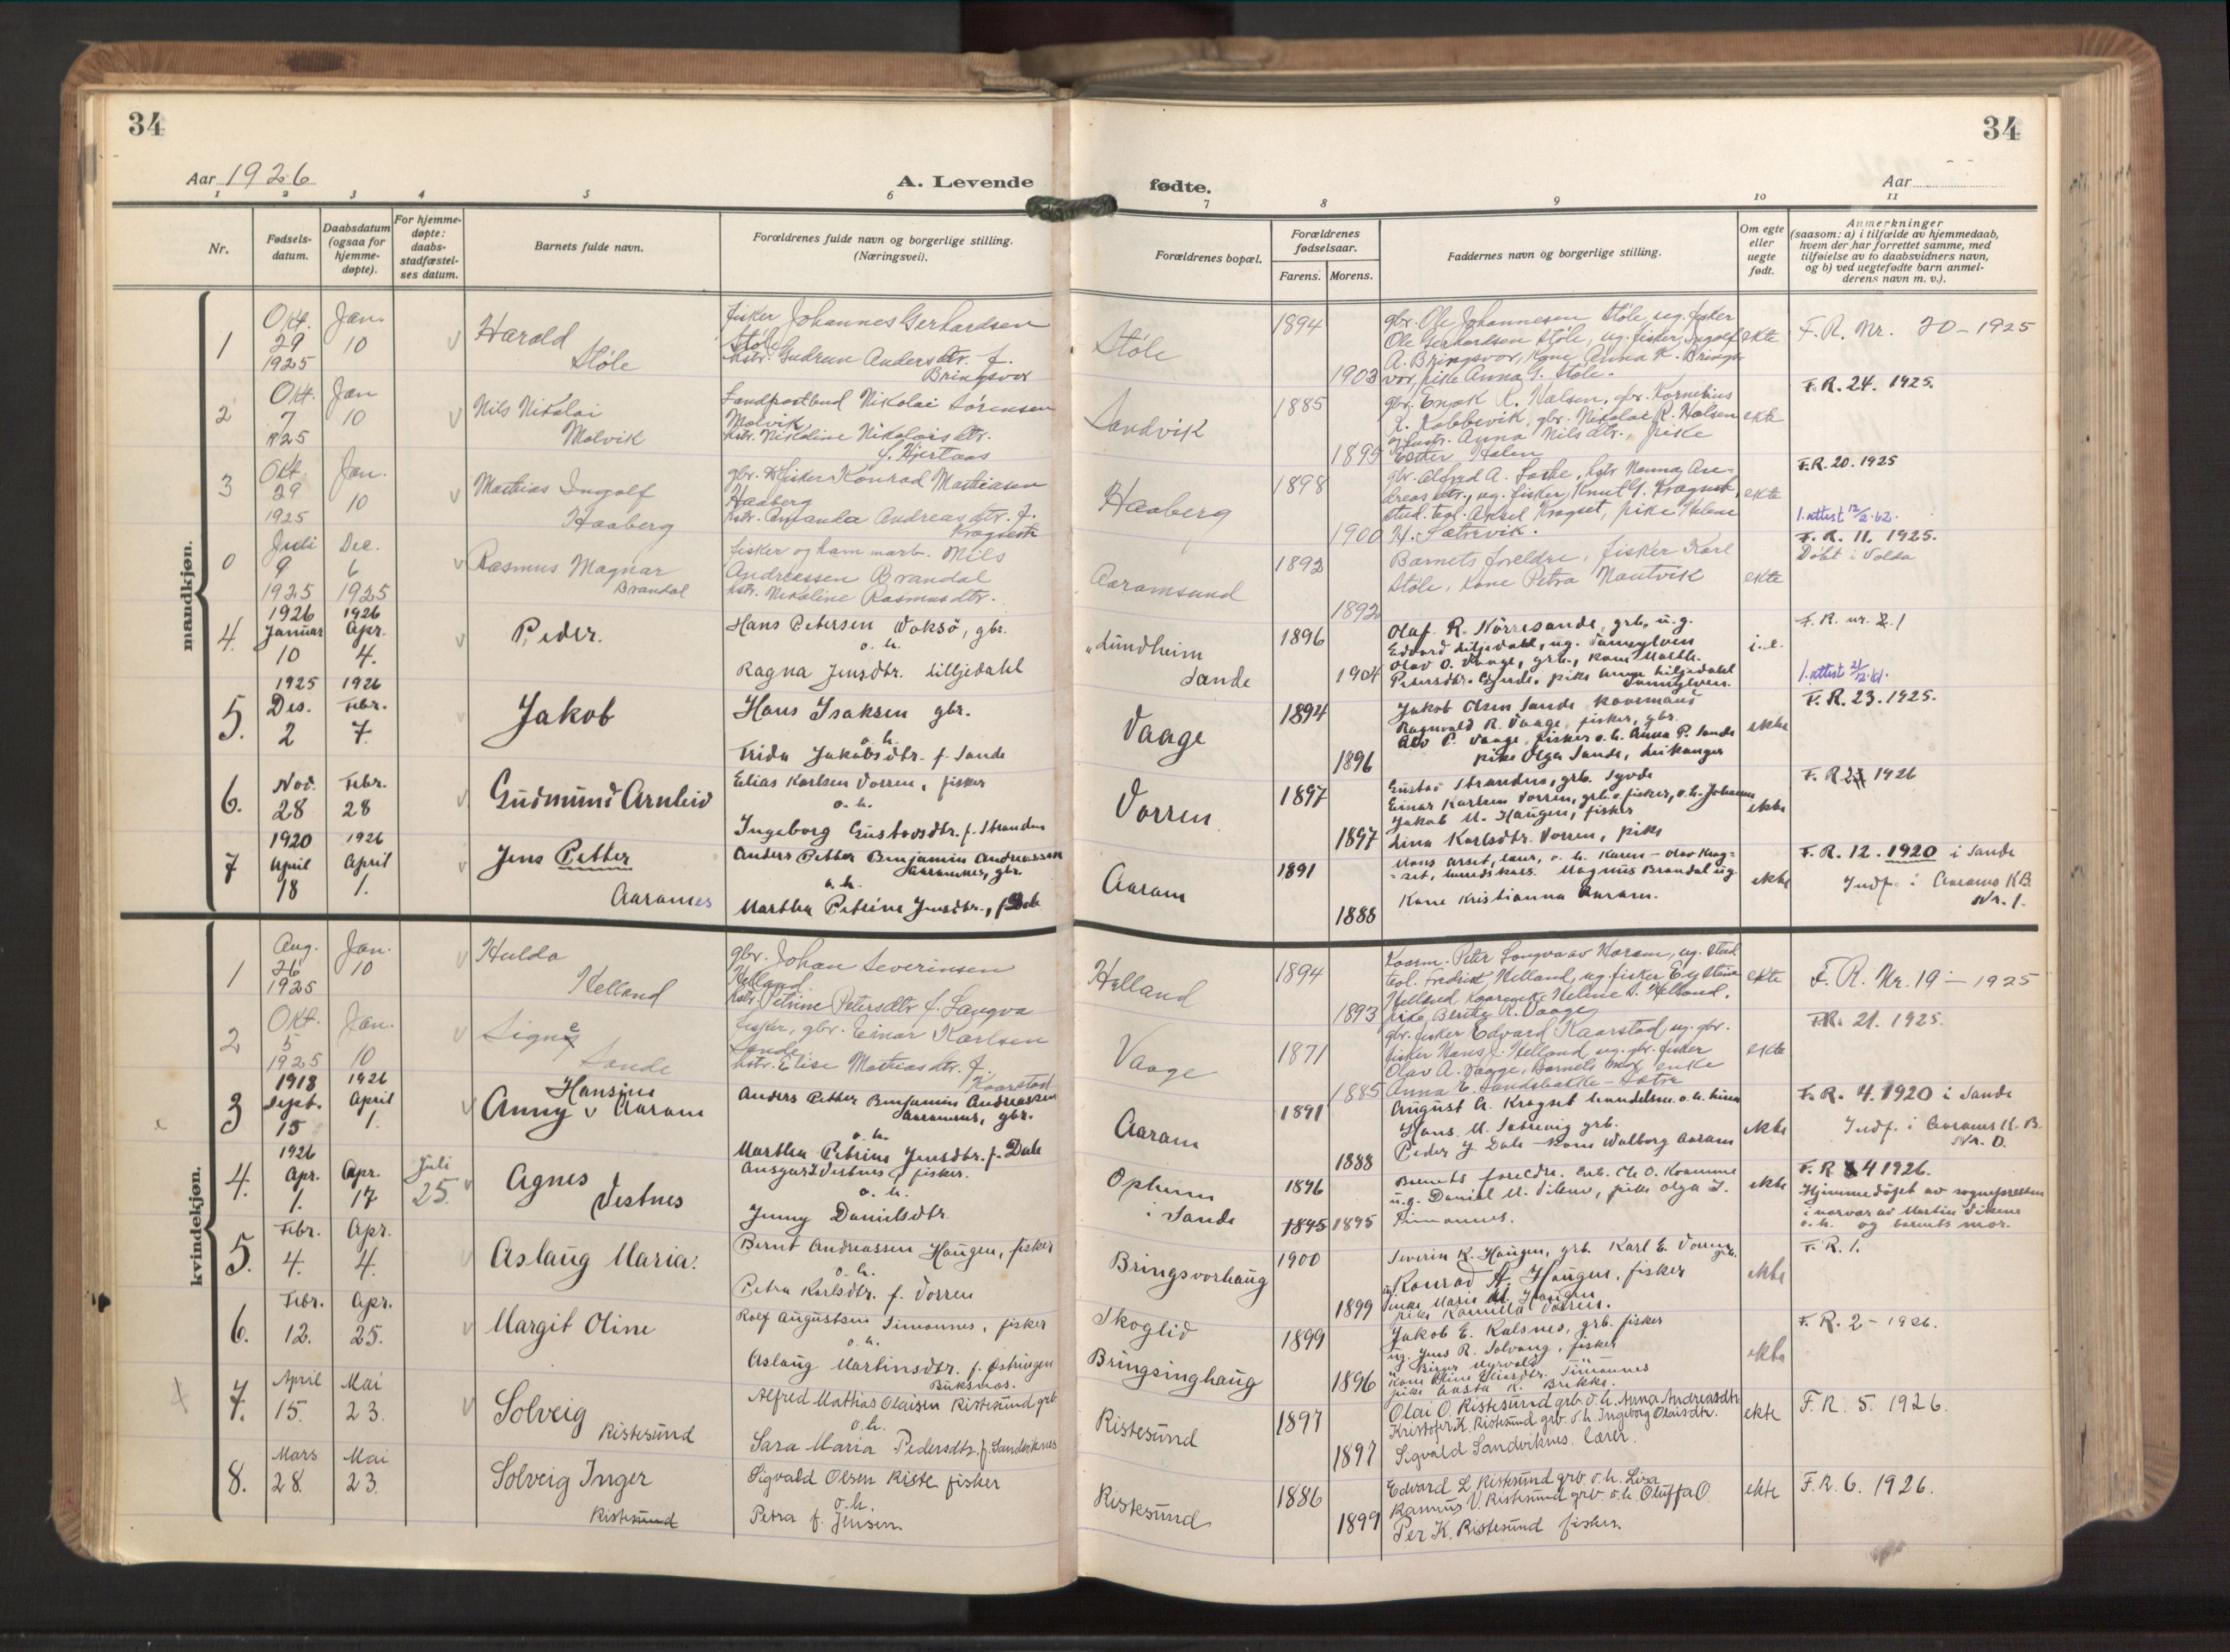 34
34
Aar 1926
A. Levende
fødte.
Aar
1 2 3 4 5 6 7 8 9 10 11
Nr.
Fødsels-
datum.
Daabsdatum
(ogsaa for
hjemme-
døpte).
For hjemme-
døpte:
daabs-
stadfæstel-
ses datum.
Barnets fulde navn.
Forældrenes fulde navn og borgerlige stilling.
(Næringsvei).
Forældrenes bopæl.
Forældrenes
fødselsaar.
Farens. Morens.
Faddernes navn og borgerlige stilling.
Om egte
eller
uegte
født.
Anmerkninger
(saasom: a) i tilfælde av hjemmedaab,
hvem der har forrettet samme, med
tilføielse av to daabsvidners navn,
og b) ved uegtefødte barn anmel-
derens navn m. v.).
mandkjøn.
1
Okt. 29 1925
Jan. 10
Harald
Støle
fisker Johannes Gerhardsen
Støle
hstr. Gudrun Andersdtr. f.
Bringsvor
Støle
1894
1903
gbr. Ole Johannesen Støle, ug. fisker
Ole Gerhardsen Støle, ug. fisker, Ingolf
A. Bringsvor, Anna K. Brings-
vor, pike Anna G. Støle.
ekte
F. R. Nr. 20 - 1925
2
Okt. 7 1925
Jan 10
Nils Nikolai
Molvik
Landpostbud Nikolai Sørensen
Molvik
hstr. Nikoline Nikolaisdtr.
Sandvik
1885
1895
gbr. Kornelius
gbr. Nikolai R. Hølsen
Anna Nilsdtr., pike
Ester
ekte
F. R. 24. 1925.
3
Okt. 29 1925
Jan. 10
Mathias Ingolf
Haaberg
gbr. fisker Konrad Mathiasen
Haaberg
hstr. Amanda Andreasdtr. f.
Haaberg
1898
1900
ug. fisker, Knut
stud. teol. Aksel Kragset, pike Helene
H. Sætrevik.
ekte
F.R. 20. 1925
1. attest 12/2.62.
0
Juli 9 1925
Dec. 6 1925
Rasmus Magnar
Brandal
fisker og Nils
Andreassen Brandal
hstr. Nikoline Rasmusdtr.
Aaramsund
1892
1892
Barnets foreldre, fisker Karl
Støle, kone Petra Nautvik
ekte
F. R. 11. 1925.
Døbt i Volda
4.
1926 Januar 10
1926 Apr. 4.
Peder.
Hans Petersen Voksö, gbr.
o. h.
Ragna Jensdtr. Lilljedahl
"Lundheim
Sande
1896
1904
Olaf R. Nörresande, grb., u.g.
Edvard Liljedahl, ug. Vannylven
Olav O. Vaage, grb., kone
Petersdtr. Gjerde, pike Liljedahl
Vannylven.
i.e.
F. R. nr. 1
1. attest 21/12.61.
5.
1925 Des. 2
1926 Febr. 7
Jakob
Hans Isaksen gbr.
o. h.
Frida Jakobsdtr. f. Sande
Vaage
1894
1896
Jakob Olsen Sande
Ragnvald R. Vaage, fisker, gbr.
P. Vaage, fisker o. h. Anna P. Sande
pike Olga Sande, Leikanger
ekte
F. R. 23. 1925.
6.
Nov. 28
Febr. 28
Gudmund Arnleiv
Elias Karlsen Vorren, fisker
o. h.
Ingeborg Gustavsdtr. f. Stranden
Vorren
1897
1897
Gustav Stranden, grb. Syvde
Einar Karlsen Vorren, grb. o. fisker, o. h. Johanna
Jakob M. Haugen, fisker
Lina Karlsdtr. Vorren, pike
ekte
F. R 1926
7
1920 April 18
1926 April 1.
Jens Petter
Aaramnes
Anders Petter Benjamin Andreassen
Aaramnes, gbr.
o. h.
Martha Petrine Jensdtr., f. Dale
Aaram
1891
1888
Hans Aarset, lærer, o. h. Karen - Olav Krag-
set, Magnus Brandal ug
Kone Kristianna Aaram.
ekte
F. R. 12. 1920 i Sande
Indf. i Aarams KB.
Nr. 1.
kvindekjøn.
1
Aug. 26 1925
Jan. 10
Hulda
Helland
gbr. Johan Severinsen
Helland
hstr. Petrine Petersdtr f. Longva
Helland
1894
1893
Peter Longva av Haram, ug. stud.
teol. Fredrik Helland, ug. fisker
Helland, Helene S. Helland,
pike Berthe R. Vaage
ekte
F. R. Nr. 19 - 1925
2
Okt. 5 1925
Jan. 10
Signe
Sande
fisker, gbr. Einar Karlsen
Sande
hstr. Elise Mathiasdtr. f.
Kaarstad
Vaage
1871
1885
gbr. fisker Edvard Kaarstad, ug. gbr.
fisker Hans J. Helland, ug. gbr. fisker
Olav A. Vaage, Barnets mor, enke
Anna E. Sandsbakke - Sætre
ekte
F.R. 21. 1925.
3
1918 Sept. 15
1926 April 1.
Hansine
Anny v Aaram
Anders Petter Benjamin Andreassen
Aaramnes, gbr.
o. h.
Martha Petrine Jensdtr. f. Dale
Aaram
1891
1888
August A. Kragset handelsm. o. h.
Hans M. Sætrevig grb.
Peder J. Dale - kone Walborg Aaram
ekte
F. R. 4. 1920 i Sande
Indf. i Aarams K. B.
Nr. 0.
4.
1926 Apr. 1.
Apr. 17
Juli 25.
Agnes
Vestnes
Ansgar Vestnes fisker.
o. h.
Jenny Danielsdtr.
Opheim
i Sande
1896
1895 1895
Barnets foreldre. Ole O. Kvamme
u.g. Daniel M. Vikene, pike Olga J.
Simonnes.
ekte
F. R 4 1926.
Hjemmedöpt av sognepresten
i nærvær av Martin Vikene
o. h. og barnets mor.
5.
Febr. 4.
Apr. 4.
Aslaug Maria.
Bernt Andreassen Haugen, fisker
o. h.
Petra Karlsdtr. f. Vorren
Bringsvorhaug
1900
1899
Severin K. Haugen, grb. Karl E. Vorren grb.
Konrad A. Haugen, fisker
pike Marie M. Haugen
pike Kamilla Vorren.
ekte
F. R. 1.
6.
Febr. 12.
Apr. 25.
Margit Oline
Rolf Augustsen Simonnes, fisker
o. h.
Aslaug Martinsdtr. f. Østringen
Buksnes.
Skoglid
Bringsinghaug
1899
1896
Jakob E. Kalsnes, grb. fisker
ug. Jens R. Solvang, fisker
" Birger Myrvold
Kone Oline Eliasdtr. Simonnes
pike Aasta K. Brekke.
ekte
F. R. 2 - 1926.
7.
April 15.
Mai 23.
Solveig
Ristesund
Alfred Mathias Olaisen Ristesund grb
o. h.
Sara Maria Pedersdtr. f. Sandviknes
Ristesund
1897
1897
Olai O. Ristesund grb. o. h. Anna Andreasdtr.
Kristofer K. Ristesund grb. o. h. Ingeborg Olaisdtr.
Sigvald Sandviknes, lærer.
ekte
F. R. 5. 1926.
8.
Mars 28.
Mai 23.
Solveig Inger
Ristesund
Sigvald Olsen Riste fisker
o. h.
Petra f. Jensen.
Ristesund
1886
1899
Edvard L. Ristesund grb. o. h. Lisa
Rasmus V. Ristesund grb. o. h. Oluffa O.
Per K. Ristesund fisker.
ekte
F. R. 6. 1926.